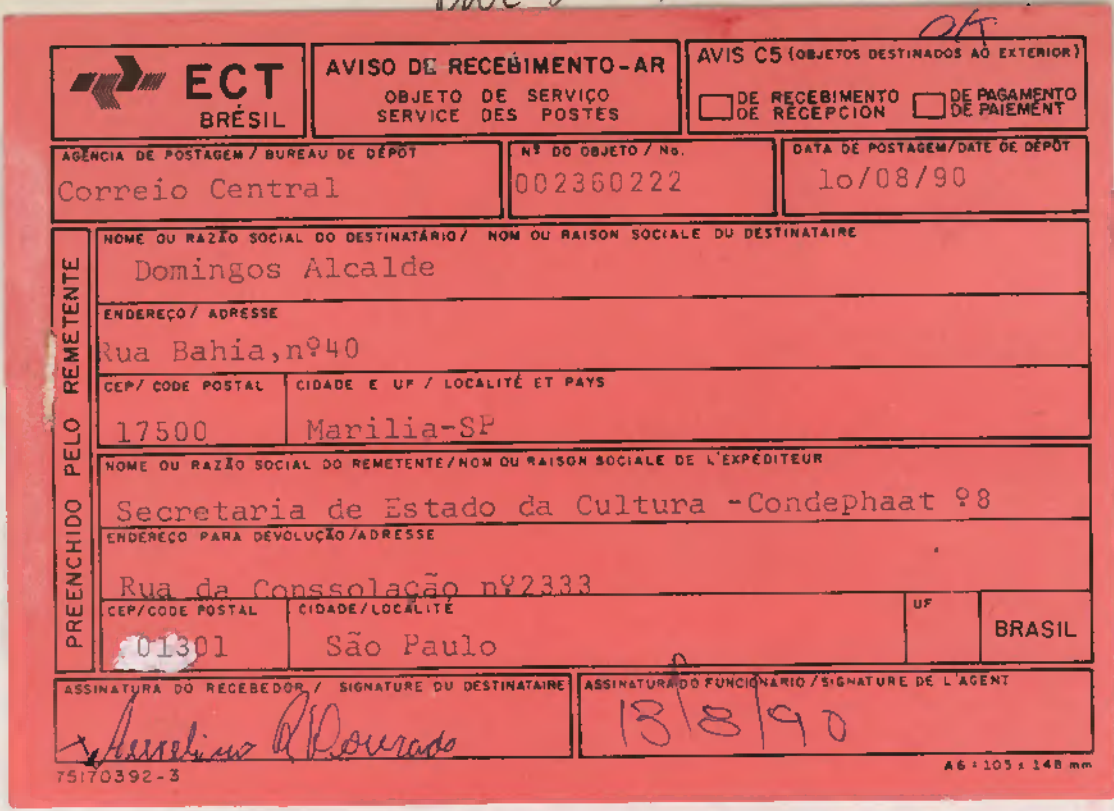 OK
ECT
BRÉSIL
AVISO DE RECEBIMENTO-AR
OBJETO DE SERVIÇO
SERVICE DES POSTES
AVIS C5 (OBJETOS DESTINADOS AO EXTERIOR)
DE RECEBIMENTO
DE RECEPCION
DE PAGAMENTO
DE PAIEMENT
AGÊNCIA DE POSTAGEM / BUREAU DE DÉPÔT
Correio Central
Nº DO OBJETO / No.
002360222
DATA DE POSTAGEM/DATE DE DÉPÔT
1o/08/90
PREENCHIDO PELO REMETENTE
NOME OU RAZÃO SOCIAL DO DESTINATÁRIO / NOM OU RAISON SOCIALE DU DESTINATAIRE
Domingos Alcalde
ENDEREÇO / ADRESSE
Rua Bahia,nº40
CEP/ CODE POSTAL
17500
CIDADE E UF / LOCALITÉ ET PAYS
Marilia-SP
NOME OU RAZÃO SOCIAL DO REMETENTE/NOM OU RAISON SOCIALE DE L'EXPÉDITEUR
Secretaria de Estado da Cultura -Condephaat º8
ENDEREÇO PARA DEVOLUÇÃO/ADRESSE
Rua da Conssolação nº2333
CEP/CODE POSTAL
01301
CIDADE/LOCALITÉ
São Paulo
UF
BRASIL
ASSINATURA DO RECEBEDOR / SIGNATURE DU DESTINATAIRE
Aurelino R Dourado
ASSINATURA DO FUNCIONÁRIO / SIGNATURE DE L'AGENT
13/8/90
75170392-3
A6 = 105 x 148 mm